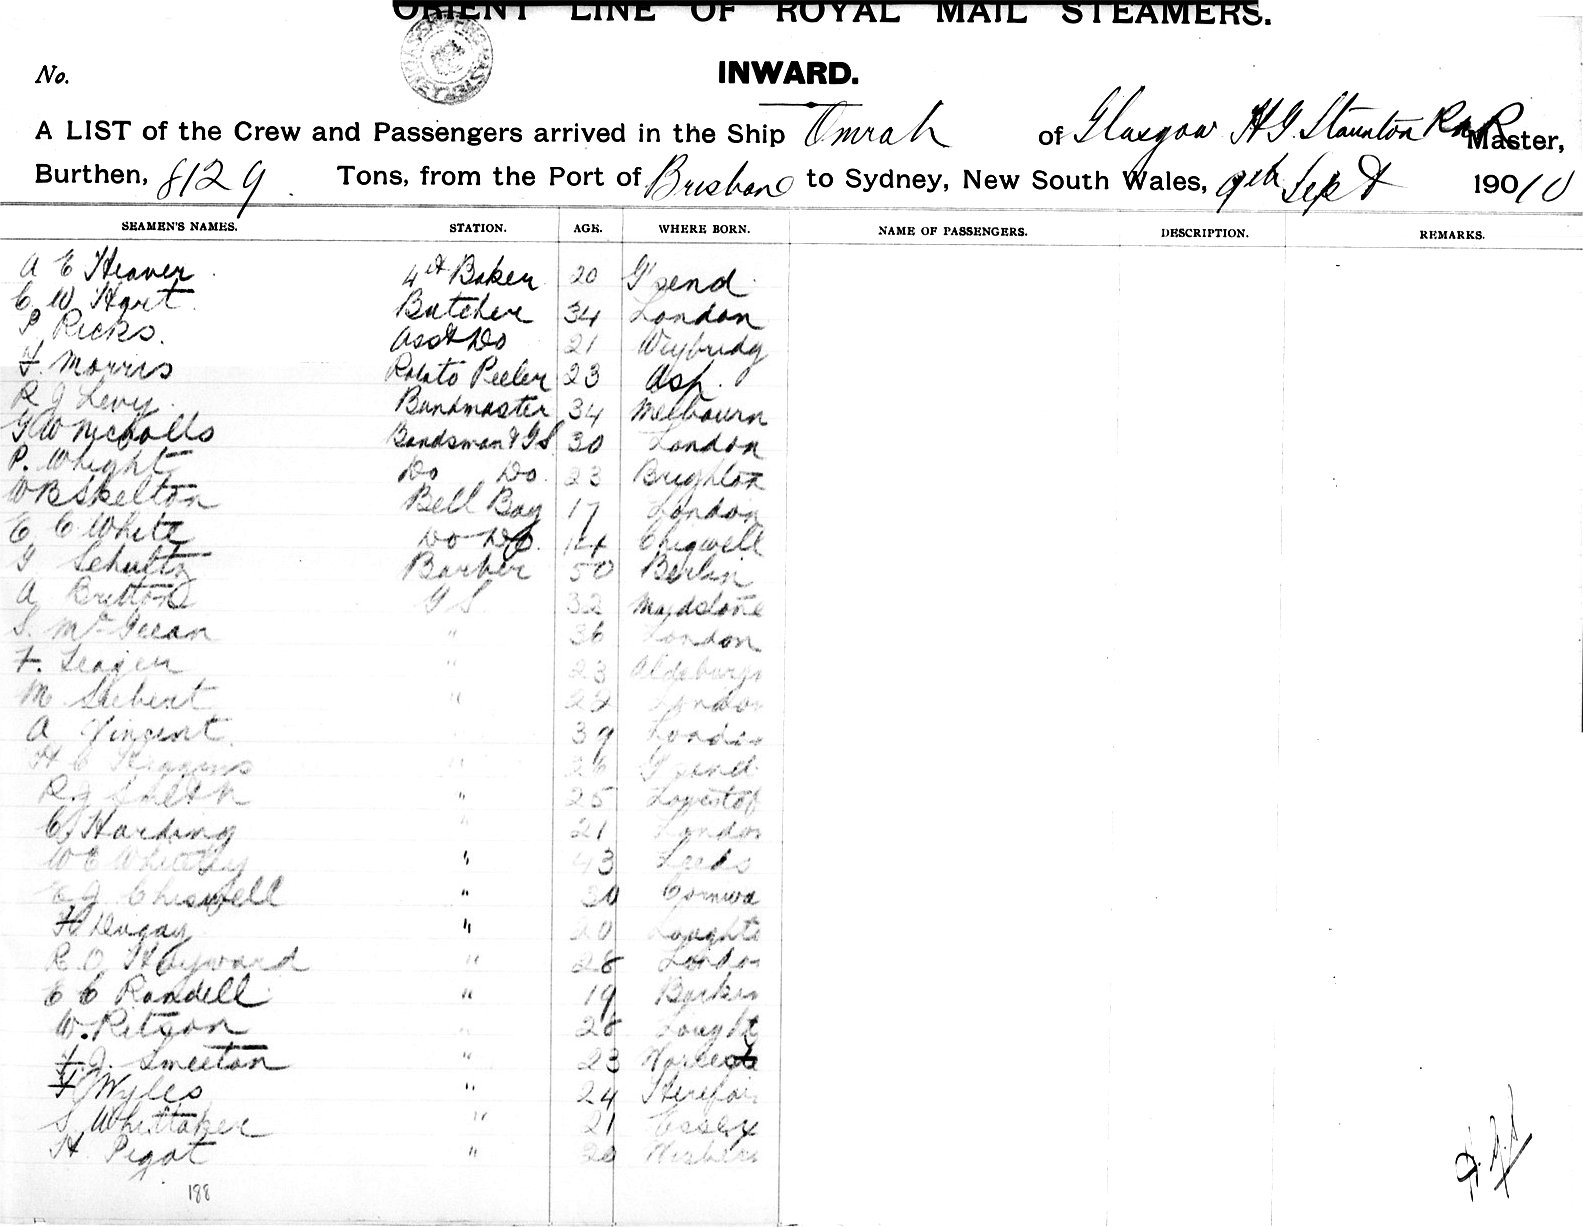 ORIENT LINE OF ROYAL MAIL STEAMERS.
No.
INWARD.
A LIST of the Crew and Passengers arrived in the Ship Omrah of Glasgow H G. Staunton RNR Master,
Burthen, 8129. Tons, from the Port of Brisbane to Sydney, New South Wales, 9th Sept 19010
SEAMEN'S NAMES. STATION. AGE. WHERE BORN. NAME OF PASSENGERS. DESCRIPTION. REMARKS.
A E Heaver 4th Baker 20 G'send
C W Hart Butcher 34 London
P Ricks. Asst Do 21 Weybridg
F. Morris Potato Peeler 23 Ash.
R J Levy. Bandmaster 34 Melbourn
G W Nicholls Bandsman & GS 30 London
P. Whight Do Do. 23 Brighton
W B Skelton Bell Boy 17 London
E C White Do Do. 14 Chigwell
G Schultz Barber 50 Berlin
A Britton G S 32 Maidstone
S. McGeean " 36 London
F. Seager " 23 Aldeburgh
M Siebert " 22 London
A Vincent 39 London
H C Higgins " 26 G'send
R J Smith " 25 Lowestof
E Harding " 21 London
W E Whiteley " 43 Leeds
E J Chiswell " 30 Cornwa
H Dugay " 20 Lought
R O Hayward " 28 London
E C Randell " 19 Barkin
W. Ritson " 28 Lought
F. J. Smeeton " 23
F Wyles " 24 Herefor
S Whittaker " 21 Essex
H Pigot " 20 Wisbec
188